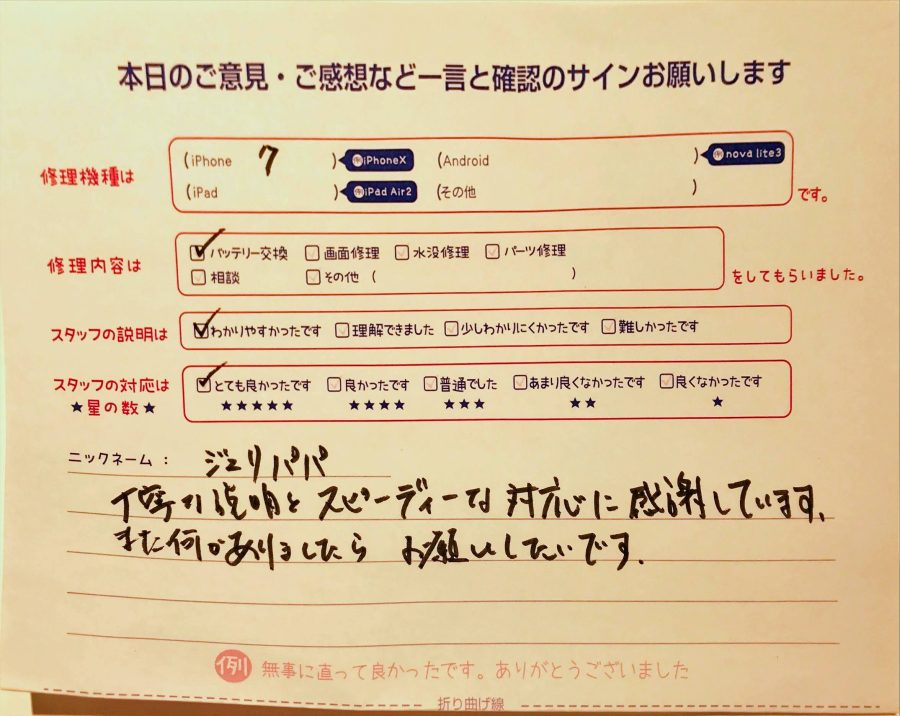 本日のご意見・ご感想など一言と確認のサインお願いします
修理機種は (iPhone 7 ) 例iPhoneX (Android ) 例nova lite3
(iPad ) 例iPad Air2 (その他 ) です。
修理内容は バッテリー交換 画面修理 水没修理 パーツ修理
相談 その他 ( ) をしてもらいました。
スタッフの説明は わかりやすかったです 理解できました 少しわかりにくかったです 難しかったです
スタッフの対応は とても良かったです 良かったです 普通でした あまり良くなかったです 良くなかったです
★星の数★ ★★★★★ ★★★★ ★★★ ★★ ★
ニックネーム： ジェリパパ
丁寧な説明とスピーディーな対応に感謝しています。
また何かありましたら お願いしたいです。
例 無事に直って良かったです。ありがとうございました
折り曲げ線